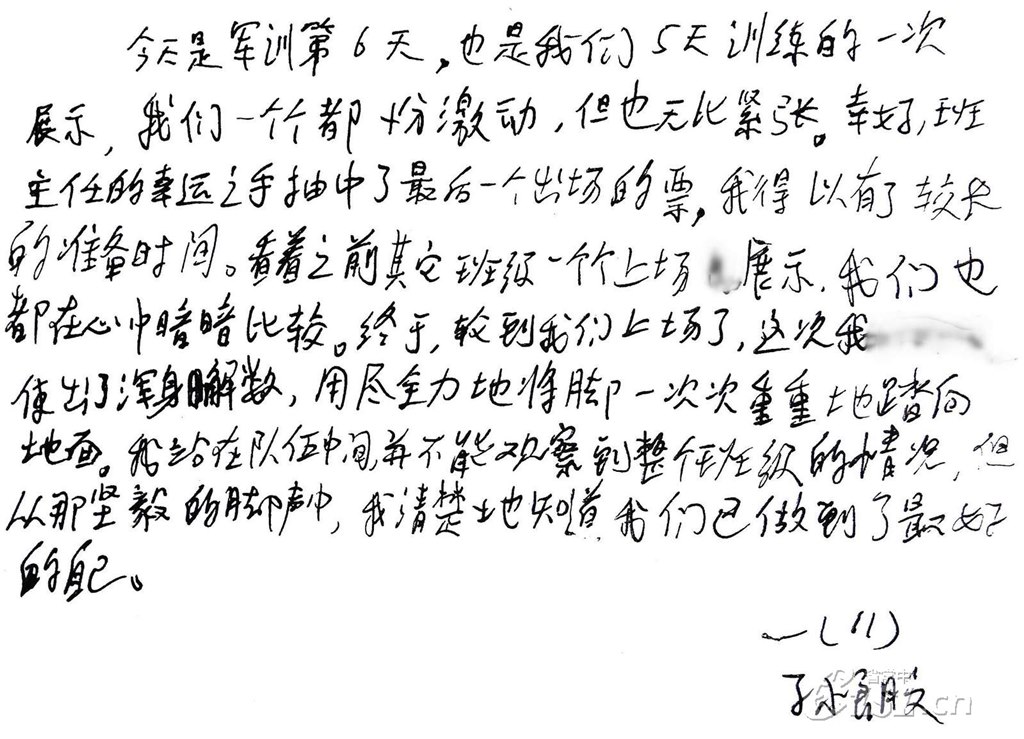 今天是军训第6天,也是我们5天训练的一次
展示,我们一个个都十份激动,但也无比紧张。幸好,班
主任的幸运之手抽中了最后一个出场的票,我得以有了较长
的准备时间。看着之前其它班级一个个上场展示,我们也
都在心中暗暗比较。终于,轮到我们上场了,这次我
使出了浑身解数,用尽全力地将脚一次次重重地踏向
地面。我站在队伍中间,并不能观察到整个班级的情况,但
从那坚毅的脚声中,我清楚地知道我们已做到了最好
的自己。
一(11)